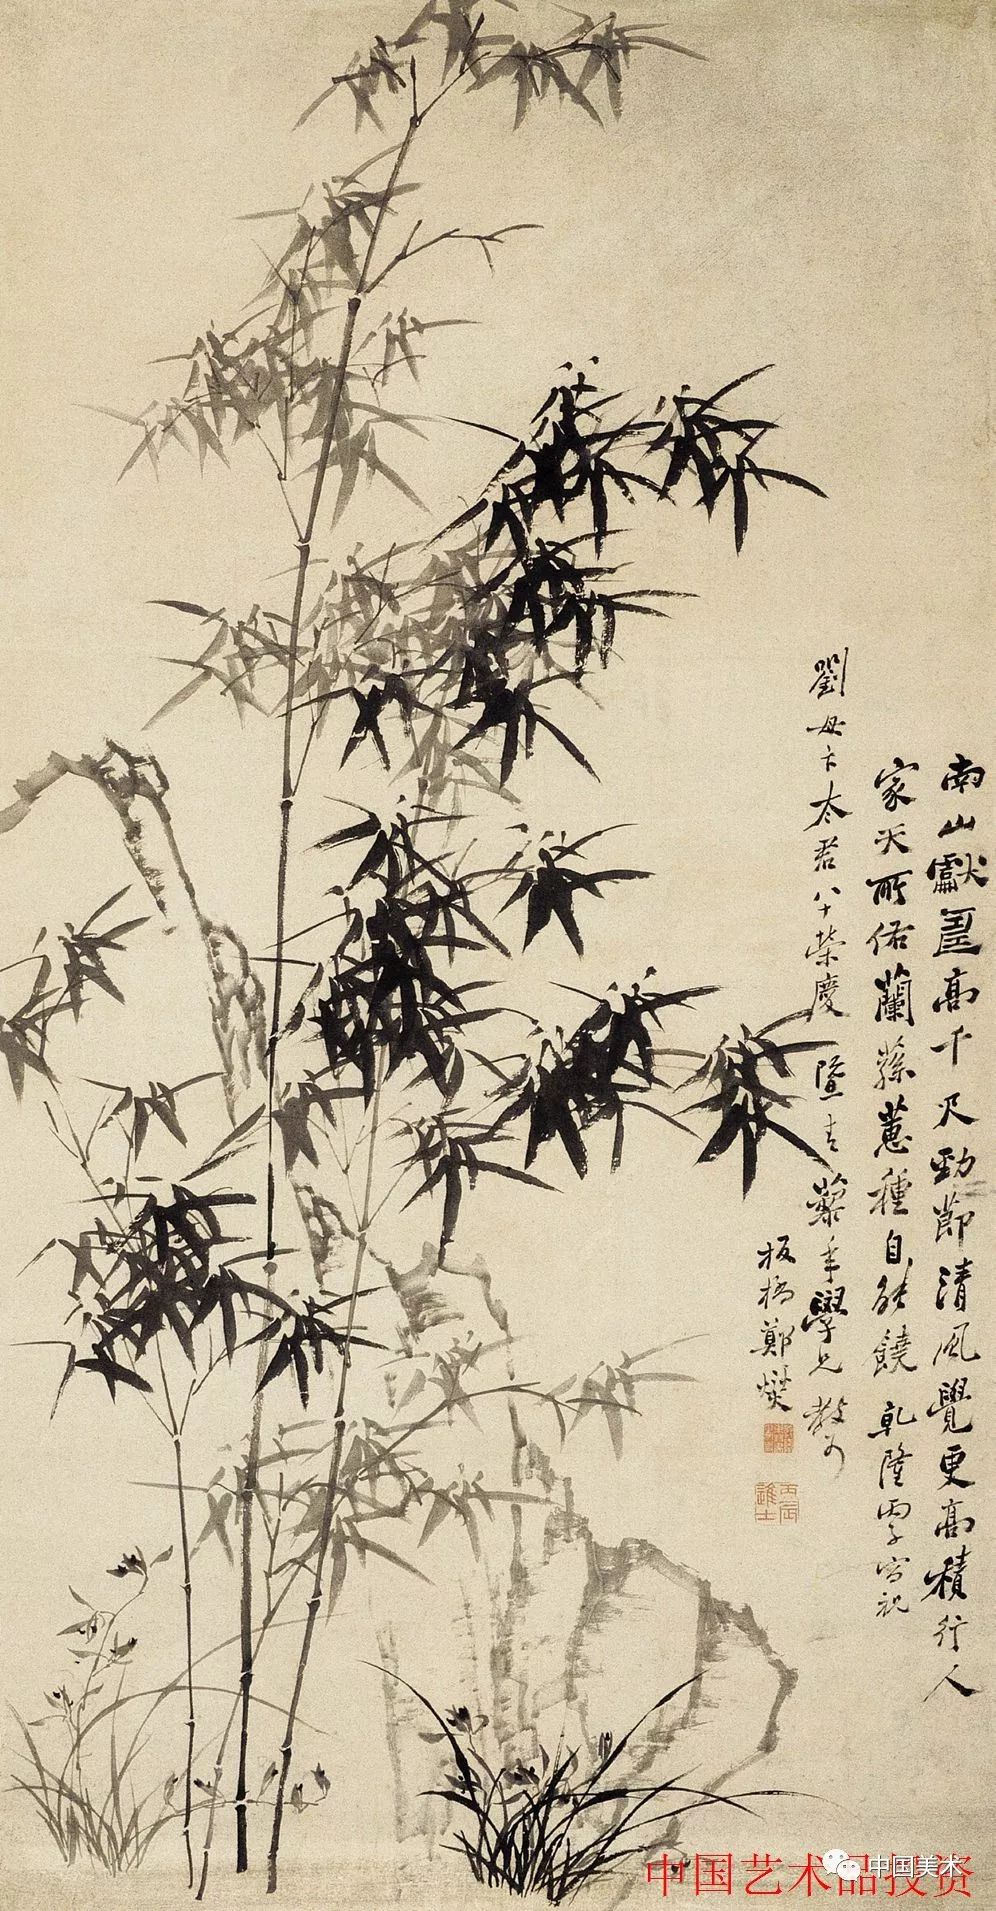 南山獻壽高千尺勁節清風覺更高積行人
家天所佑蘭蓀蕙種自能饒 乾隆丙子寫祝
劉母卞太君八十榮慶 暨青藜年學兄教可
板橋鄭燮
丙辰進士
中国艺术品投资
中国美术